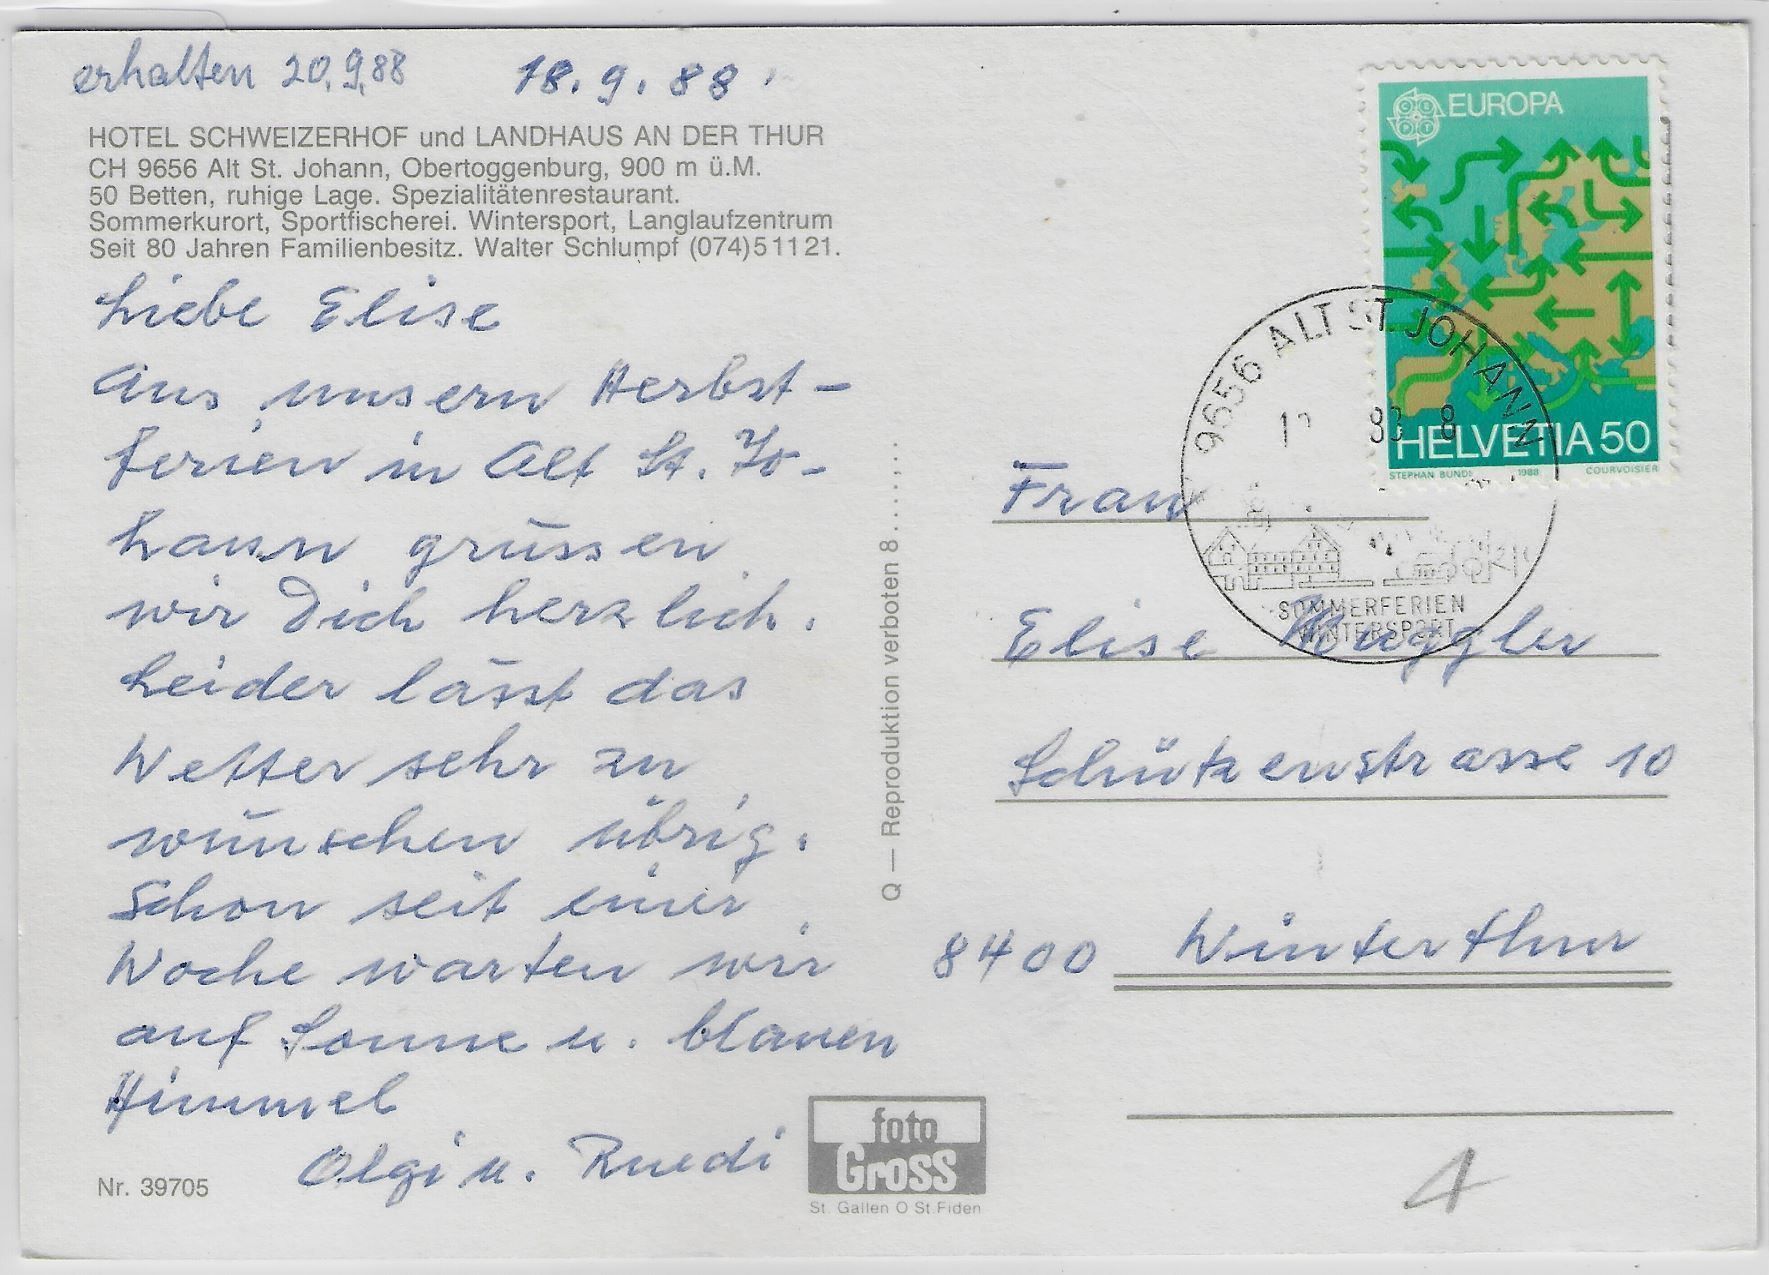 erhalten 20.9.88 18.9.88.
HOTEL SCHWEIZERHOF und LANDHAUS AN DER THUR
CH 9656 Alt St. Johann, Obertoggenburg, 900 m ü.M.
50 Betten, ruhige Lage. Spezialitätenrestaurant.
Sommerkurort, Sportfischerei. Wintersport, Langlaufzentrum
Seit 80 Jahren Familienbesitz. Walter Schlumpf (074)51121.
Liebe Elise
Aus unsern Herbst-
ferien in Alt St. Jo-
hann grüssen
wir Dich herzlich.
Leider lässt das
Wetter sehr zu
wünschen übrig.
Schon seit einer
Woche warten wir
auf Sonne u. blauen
Himmel
Olgi u. Ruedi
Nr. 39705
foto
Gross
St. Gallen O St.Fiden
Q — Reproduktion verboten 8......
CEPT
EUROPA
HELVETIA 50
STEPHAN BUNDI 1988 COURVOISIER
9656 ALT ST. JOHANN
SOMMERFERIEN
WINTERSPORT
Frau
Elise Muggler
Schützenstrasse 10
8400 Winterthur
4